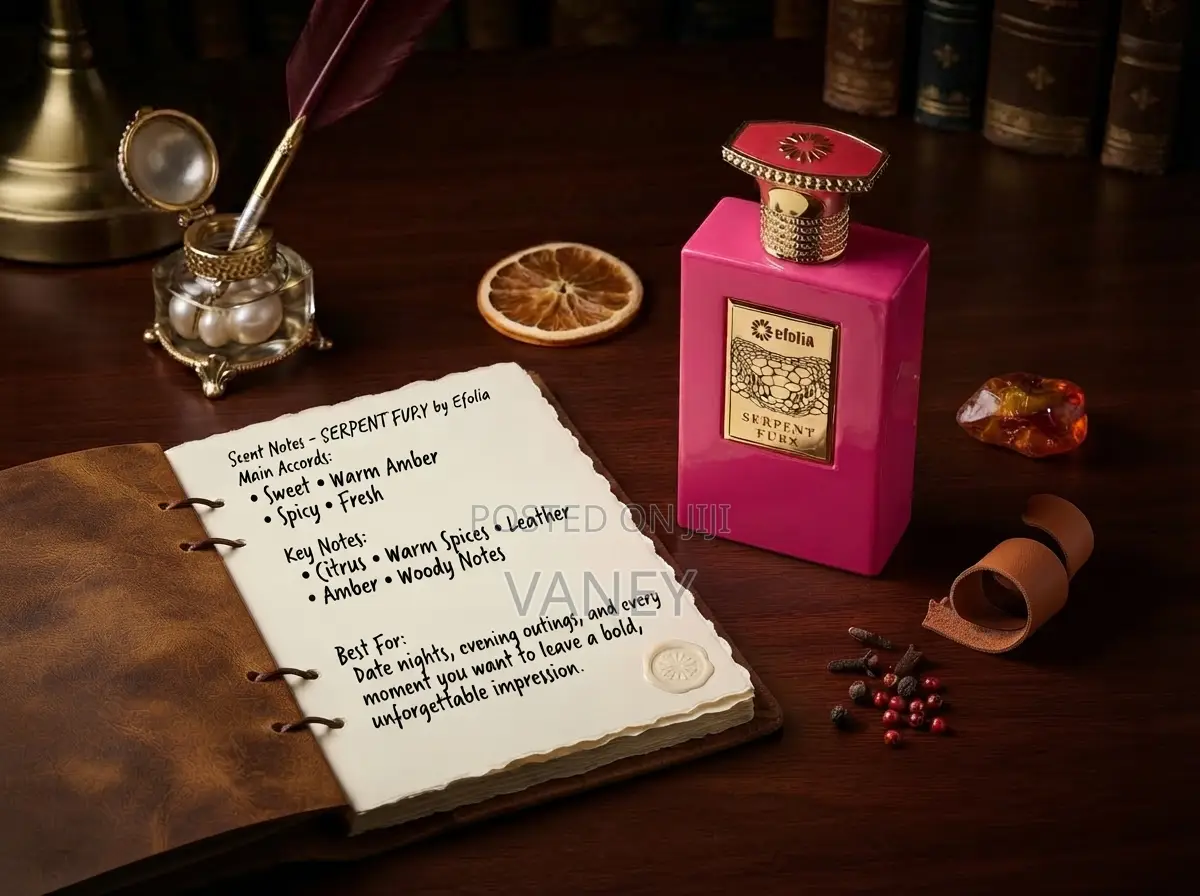 Scent Notes - SERPENT FURY by Efolia
Main Accords:
• Sweet • Warm Amber
• Spicy • Fresh
Key Notes:
• Citrus • Warm Spices • Leather
• Amber • Woody Notes
Best For:
Date nights, evening outings, and every
moment you want to leave a bold,
unforgettable impression.
efolia
SERPENT
FURY
POSTED ON JIJI
VANEY